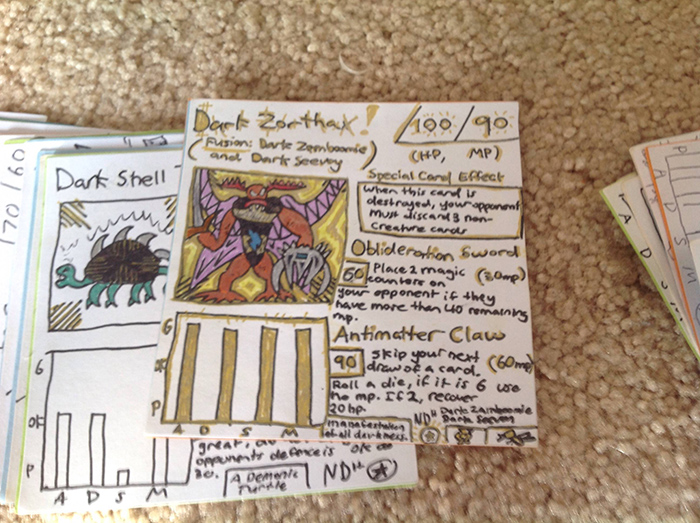 Dark Zorthax!
(Fusion: Dark Zamboomie
and Dark Seevoy)
100/90
(HP, MP)
Special Card Effect
When this card is
destroyed, your opponent
must discard 3 non-
creature cards
Oblideration Sword
60 Place 2 magic (20mp)
counters on
your opponent if they
have more than 40 remaining
mp.
Antimatter Claw
90 Skip your next (60mp)
draw of a card.
Roll a die, if it is 6 use
no mp. If 2, recover
20hp.
G
OK
P
A D S M
manafestation
of all darkness.
ND" Dark Zamboomie
Dark Seevoy
170/60
Dark Shell
G
OK
P
A D S M
great,
opponents defence is
80.
A Demonic
Turtle
ND"
A D S
P